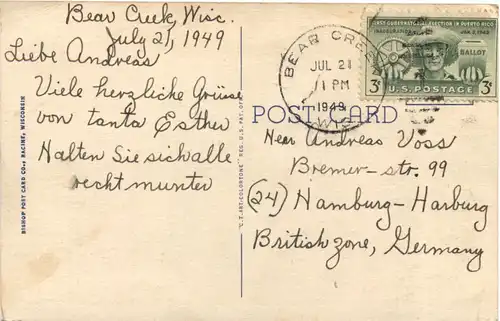 Bear Creek, Wisc.
July 21, 1949
Liebe Andreas
Viele herzliche Grüsse
von tanta Esther
Halten Sie sich alle
recht munter
BISHOP POST CARD CO., RACINE, WISCONSIN
"C.T. ART-COLORTONE" REG. U.S. PAT. OFF.
POST CARD
BEAR CREEK
JUL 21
1 PM
1949
WIS.
FIRST GUBERNATORIAL ELECTION IN PUERTO RICO
INAUGURATION
JAN. 2, 1949
BALLOT
3¢ U.S. POSTAGE 3¢
Herr Andreas Voss
Bremer-str. 99
(24) Hamburg-Harburg
British zone, Germany